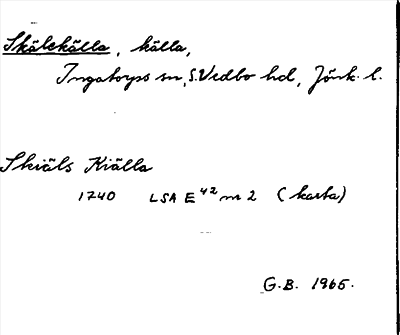 Skälskälla, källa,
Ingatorps sn, S. Vedbo hd, Jönk. l.
Skiäls Kiälla
1740 LSA E 42 nr 2 (karta)
G.B. 1965.